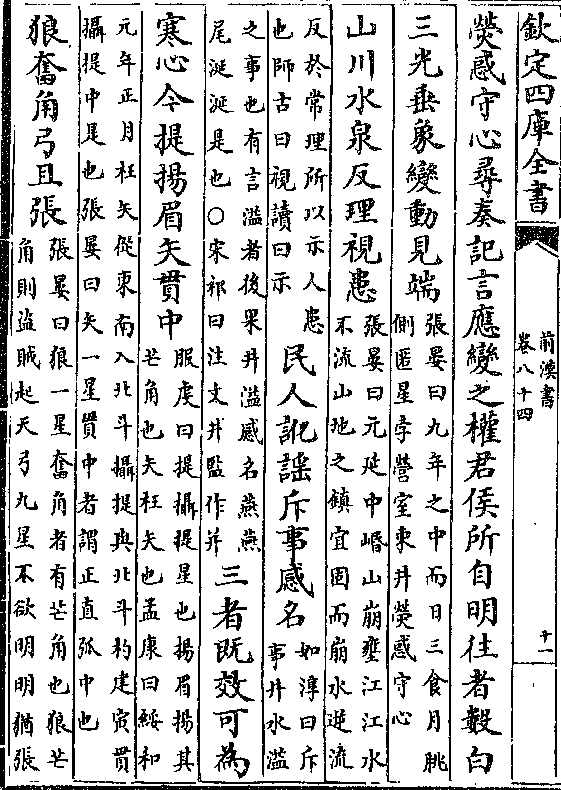 欽定四庫全書
前漢書
卷八十四
十一
熒惑守心尋奏記言應變之權君侯所自明往者數白
三光垂象變動見端
張晏曰九年之中而日三食月朓
側匿星孛營室東井熒惑守心
山川水泉反理視患
張晏曰元延中岷山崩壅江江水
不流山地之鎮宜固而崩水逆流
反於常理所以示人患
也師古曰視讀曰示
民人訛謡斥事感名
如淳曰斥
事井水溢
之事也有言溢者後果井溢感名燕燕
尾涎涎是也○宋祁曰注文井監作并
三者既效可為
寒心今提揚眉矢貫中
服虔曰提攝提星也揚眉揚其
芒角也矢枉矢也孟康曰綏和
元年正月枉矢從東南入北斗攝提與北斗杓建寅貫
攝提中是也張晏曰矢一星貫中者謂正直弧中也
狼奮角弓且張
張晏曰狼一星奮角者有芒角也狼芒
角則盜賊起天弓九星不欲明明猶張